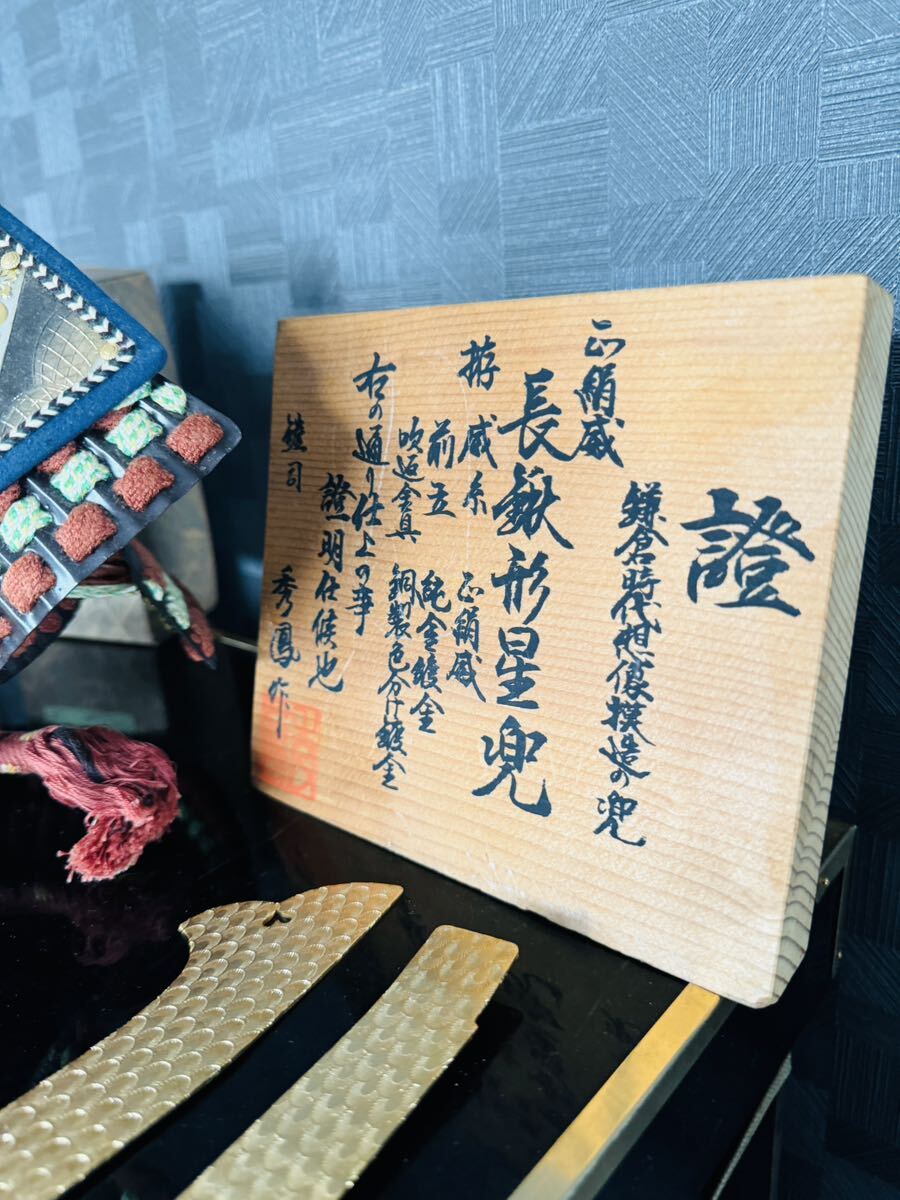 證
鎌倉時代想像模造の兜
正絹威
長鍬形星兜
威糸 正絹威
前立 純金鍍金
吹返金具 銅製色分け鍍金
右の通り仕上の事
證明仕候也
鎧司 秀鳳作